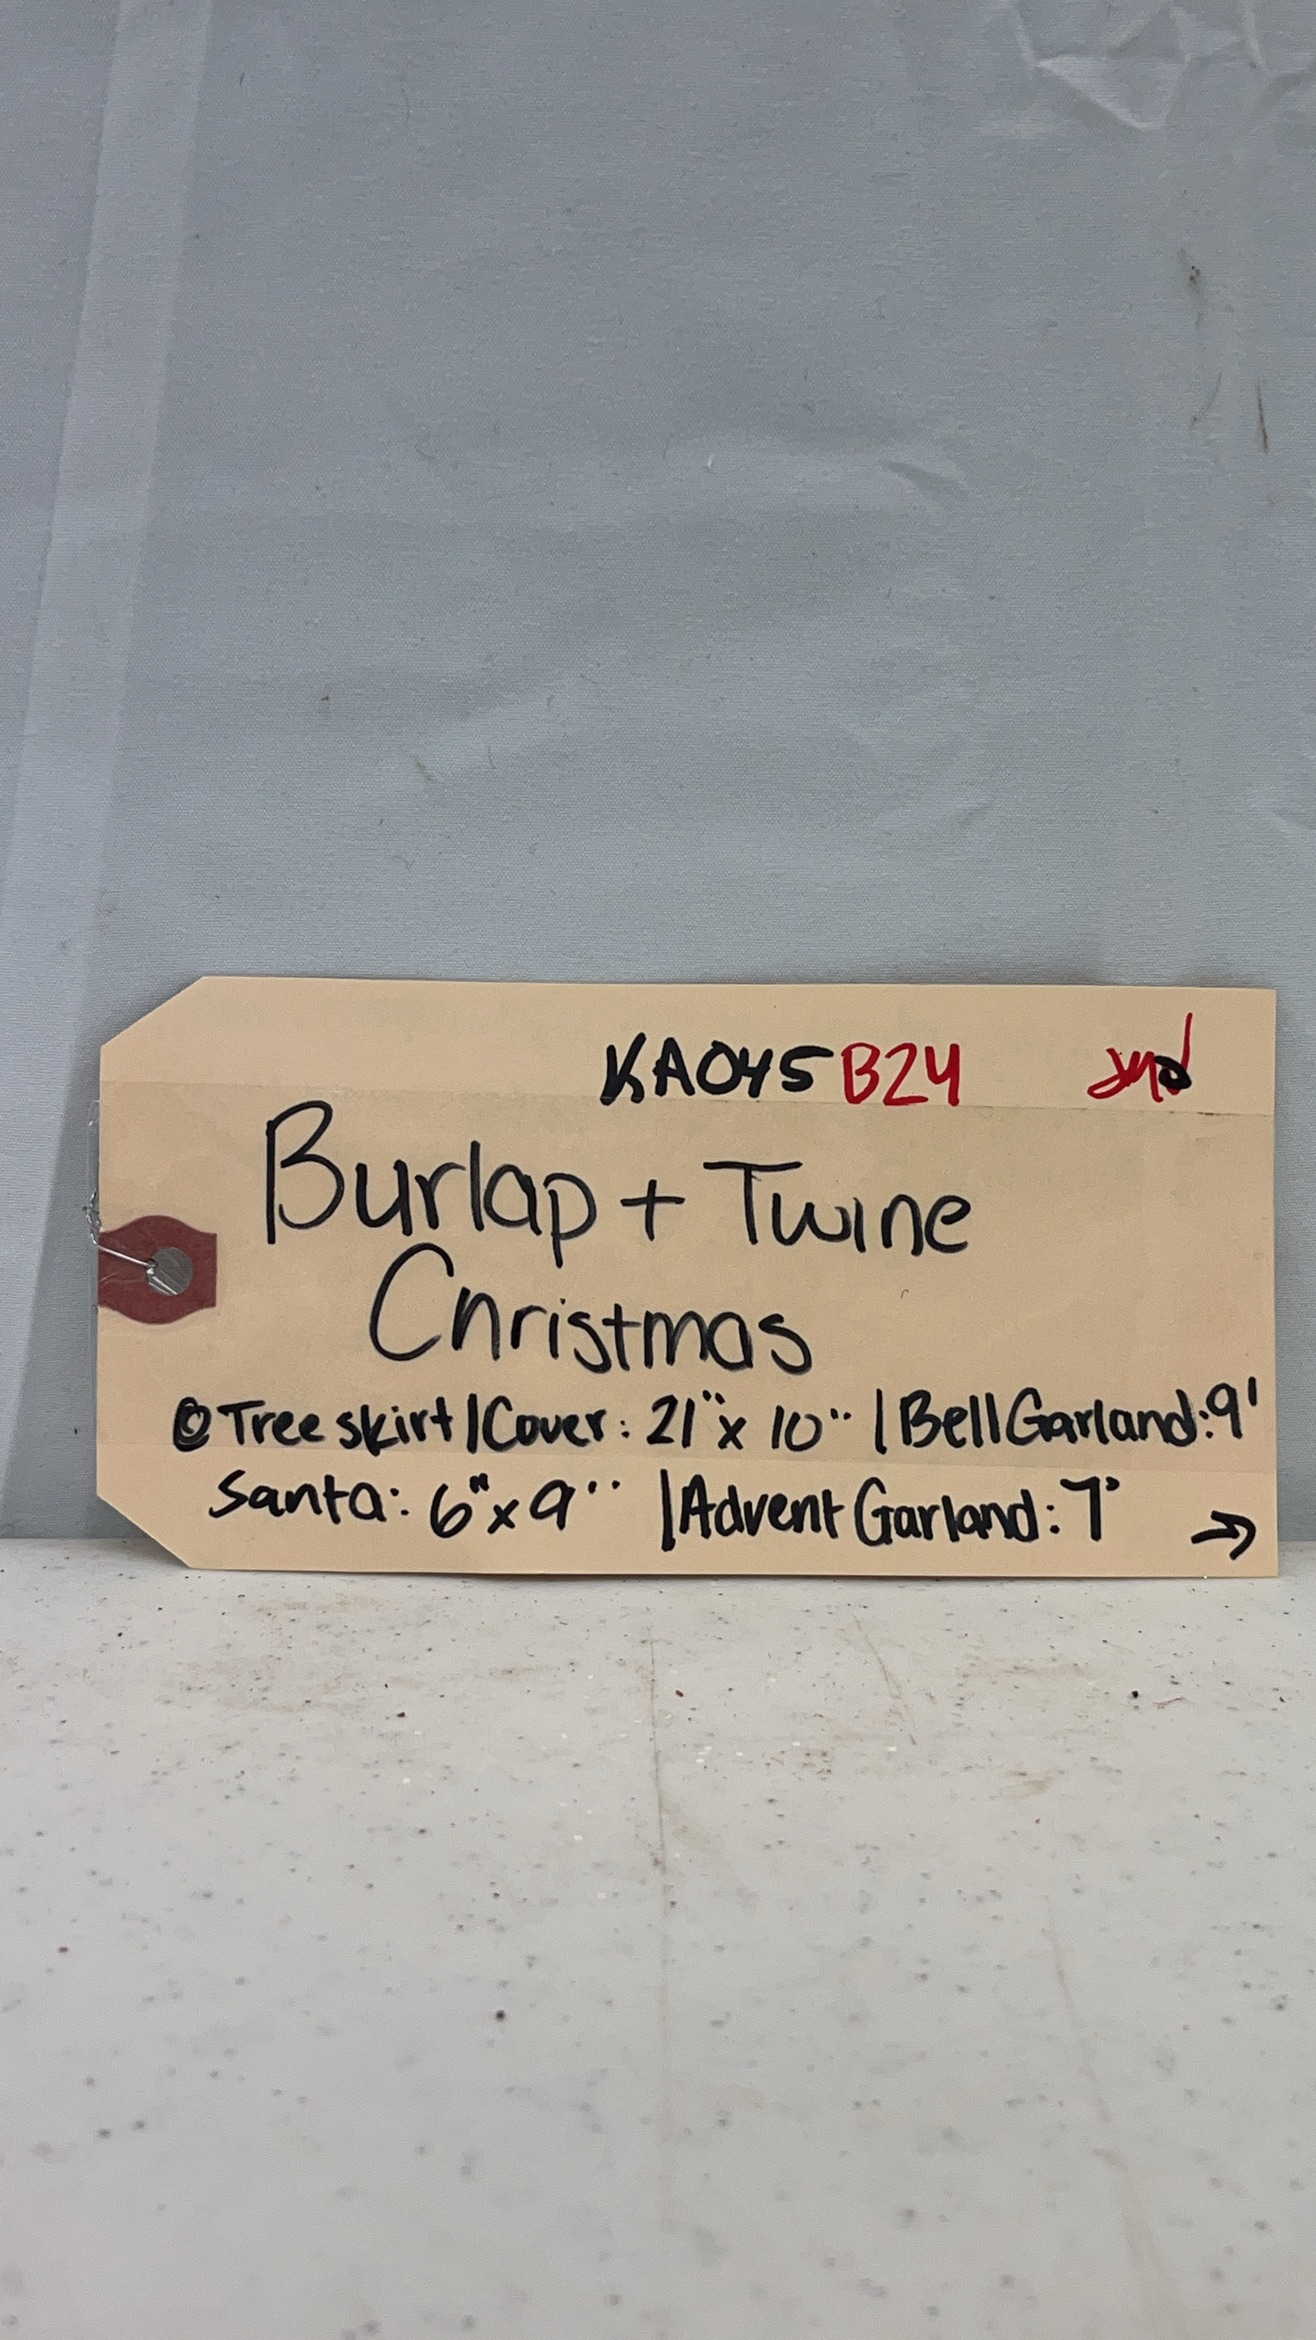 KA045 B24
Burlap + Twine
Christmas
© Tree skirt | Cover: 21" x 10" | Bell Garland: 9'
Santa: 6" x 9" | Advent Garland: 7'
→